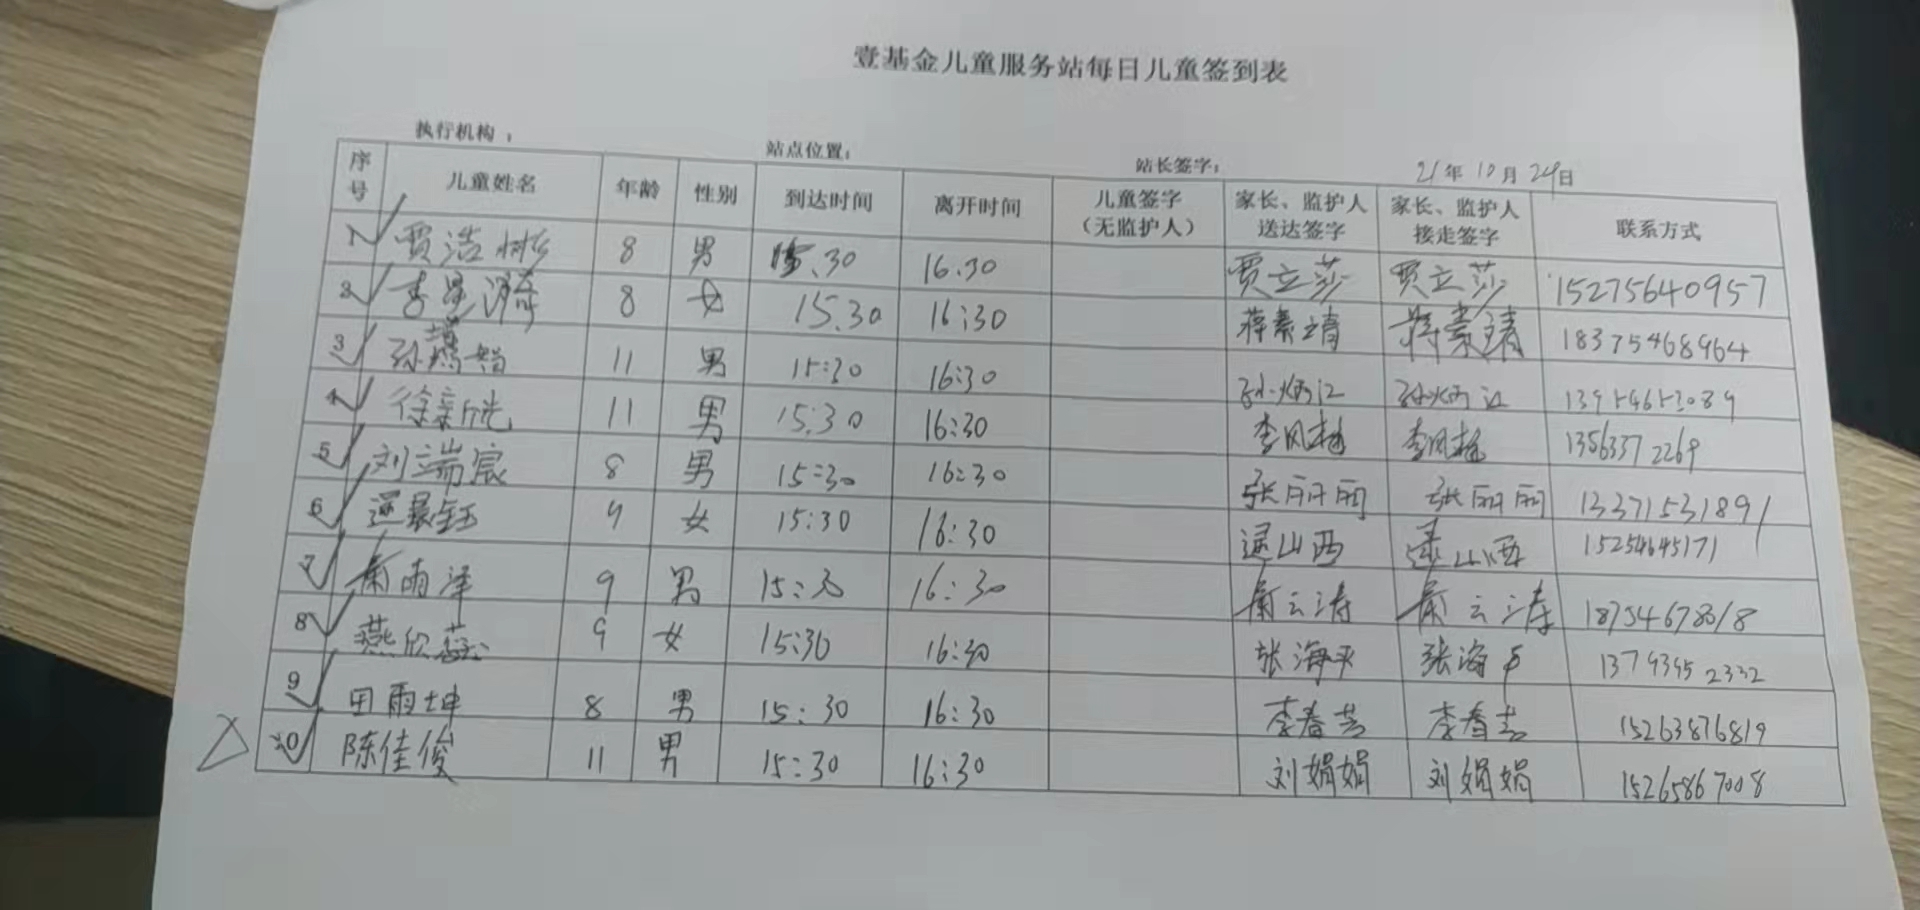 壹基金儿童服务站每日儿童签到表
执行机构： 站点位置： 站长签字： 21年10月24日
序号 儿童姓名 年龄 性别 到达时间 离开时间 儿童签字（无监护人） 家长、监护人送达签字 家长、监护人接走签字 联系方式
1 贾浩彬 8 男 15.30 16.30 贾立莎 贾立莎 15275640957
2 李星 8 女 15.30 16:30 蒋素靖 蒋素靖 18375468964
3 孙 11 男 15:30 16:30 孙炳江 孙炳江
4 徐新 11 男 15:30 16:30 李风梅 李风梅 13563372269
5 刘端宸 8 男 15:30 16:30 张丽丽 张丽丽 13371531891
6 逯 9 女 15:30 16:30 逯山西 逯山西 15254645171
7 雨泽 9 男 15:30 16:30 云涛 云涛 18754678318
8 燕欣蕊 9 女 15:30 16:30 张海平 张海平 13793952332
9 田雨坤 8 男 15:30 16:30 李春芸 李春芸 15263876819
10 陈佳俊 11 男 15:30 16:30 刘娟娟 刘娟娟 15265867008